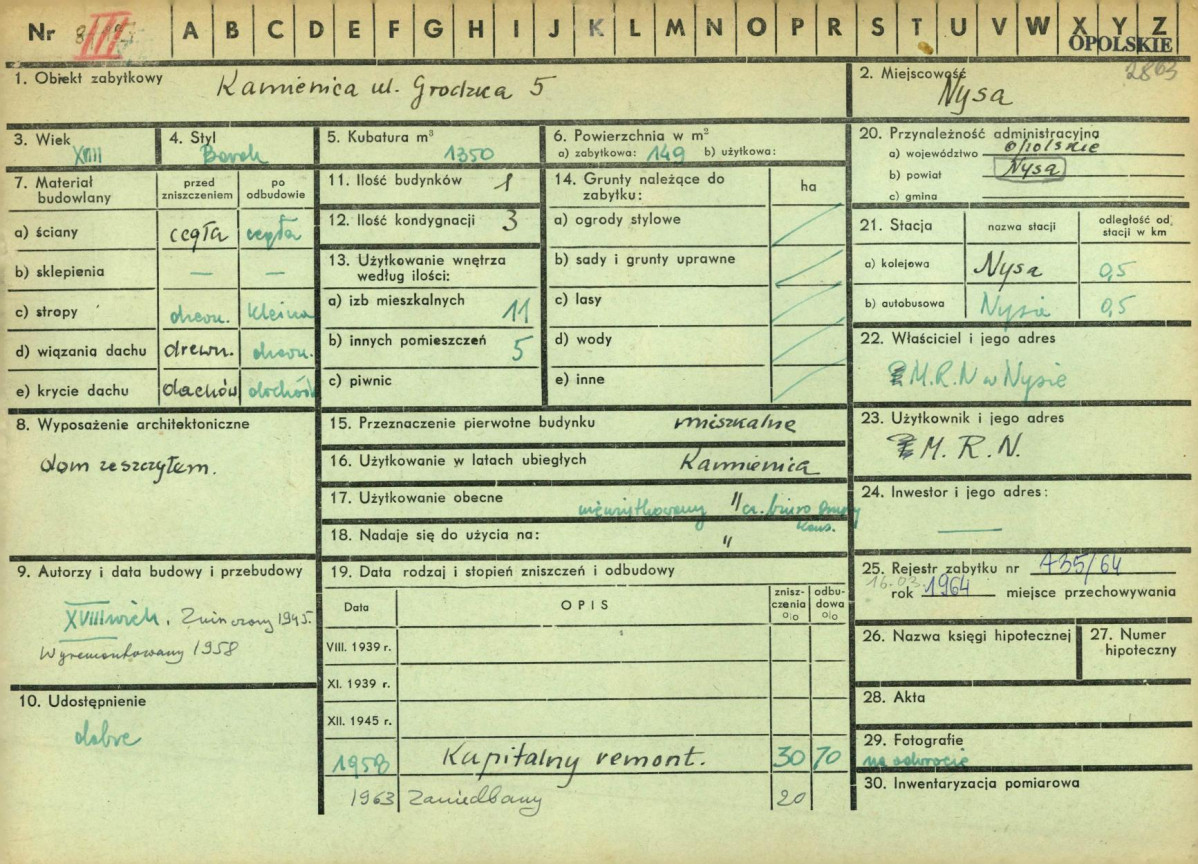 Nr III A B C D E F G H I J K L M N O P R S T U V W X Y Z
OPOLSKIE
2863
1. Obiekt zabytkowy Kamienica ul. Grodzka 5
2. Miejscowość Nysa
3. Wiek XVIII
4. Styl Barok
5. Kubatura m³ 1350
6. Powierzchnia w m²
a) zabytkowa: 149 b) użytkowa:
7. Materiał budowlany
przed zniszczeniem
po odbudowie
a) ściany cegła cegła
b) sklepienia — —
c) stropy drewn. kleina
d) wiązania dachu drewn. drewn.
e) krycie dachu dachów dachów
8. Wyposażenie architektoniczne
dom ze szczytem.
9. Autorzy i data budowy i przebudowy
XVIII wiek. Zniszczony 1945.
Wyremontowany 1958
10. Udostępnienie
dobre
11. Ilość budynków 1
12. Ilość kondygnacji 3
13. Użytkowanie wnętrza
według ilości:
a) izb mieszkalnych 11
b) innych pomieszczeń 5
c) piwnic
14. Grunty należące do
zabytku:
ha
a) ogrody stylowe
b) sady i grunty uprawne
c) lasy
d) wody
e) inne
15. Przeznaczenie pierwotne budynku mieszkalne
16. Użytkowanie w latach ubiegłych Kamienica
17. Użytkowanie obecne nieużytkowany " cz. biuro
kons.
18. Nadaje się do użycia na: "
19. Data rodzaj i stopień zniszczeń i odbudowy
Data OPIS znisz-czenia o|o odbu-dowa o|o
VIII. 1939 r.
XI. 1939 r.
XII. 1945 r.
1958 Kapitalny remont. 30 70
1963 Zaniedbany 20
20. Przynależność administracyjna
a) województwo opolskie
b) powiat Nysa
c) gmina
21. Stacja
nazwa stacji
odległość od stacji w km
a) kolejowa Nysa 0,5
b) autobusowa Nysa 0,5
22. Właściciel i jego adres
M.R.N w Nysie
23. Użytkownik i jego adres
M. R. N.
24. Inwestor i jego adres:
—
25. Rejestr zabytku nr A35/64
16.03. rok 1964 miejsce przechowywania
26. Nazwa księgi hipotecznej
27. Numer
hipoteczny
28. Akta
29. Fotografie
na odwrocie
30. Inwentaryzacja pomiarowa